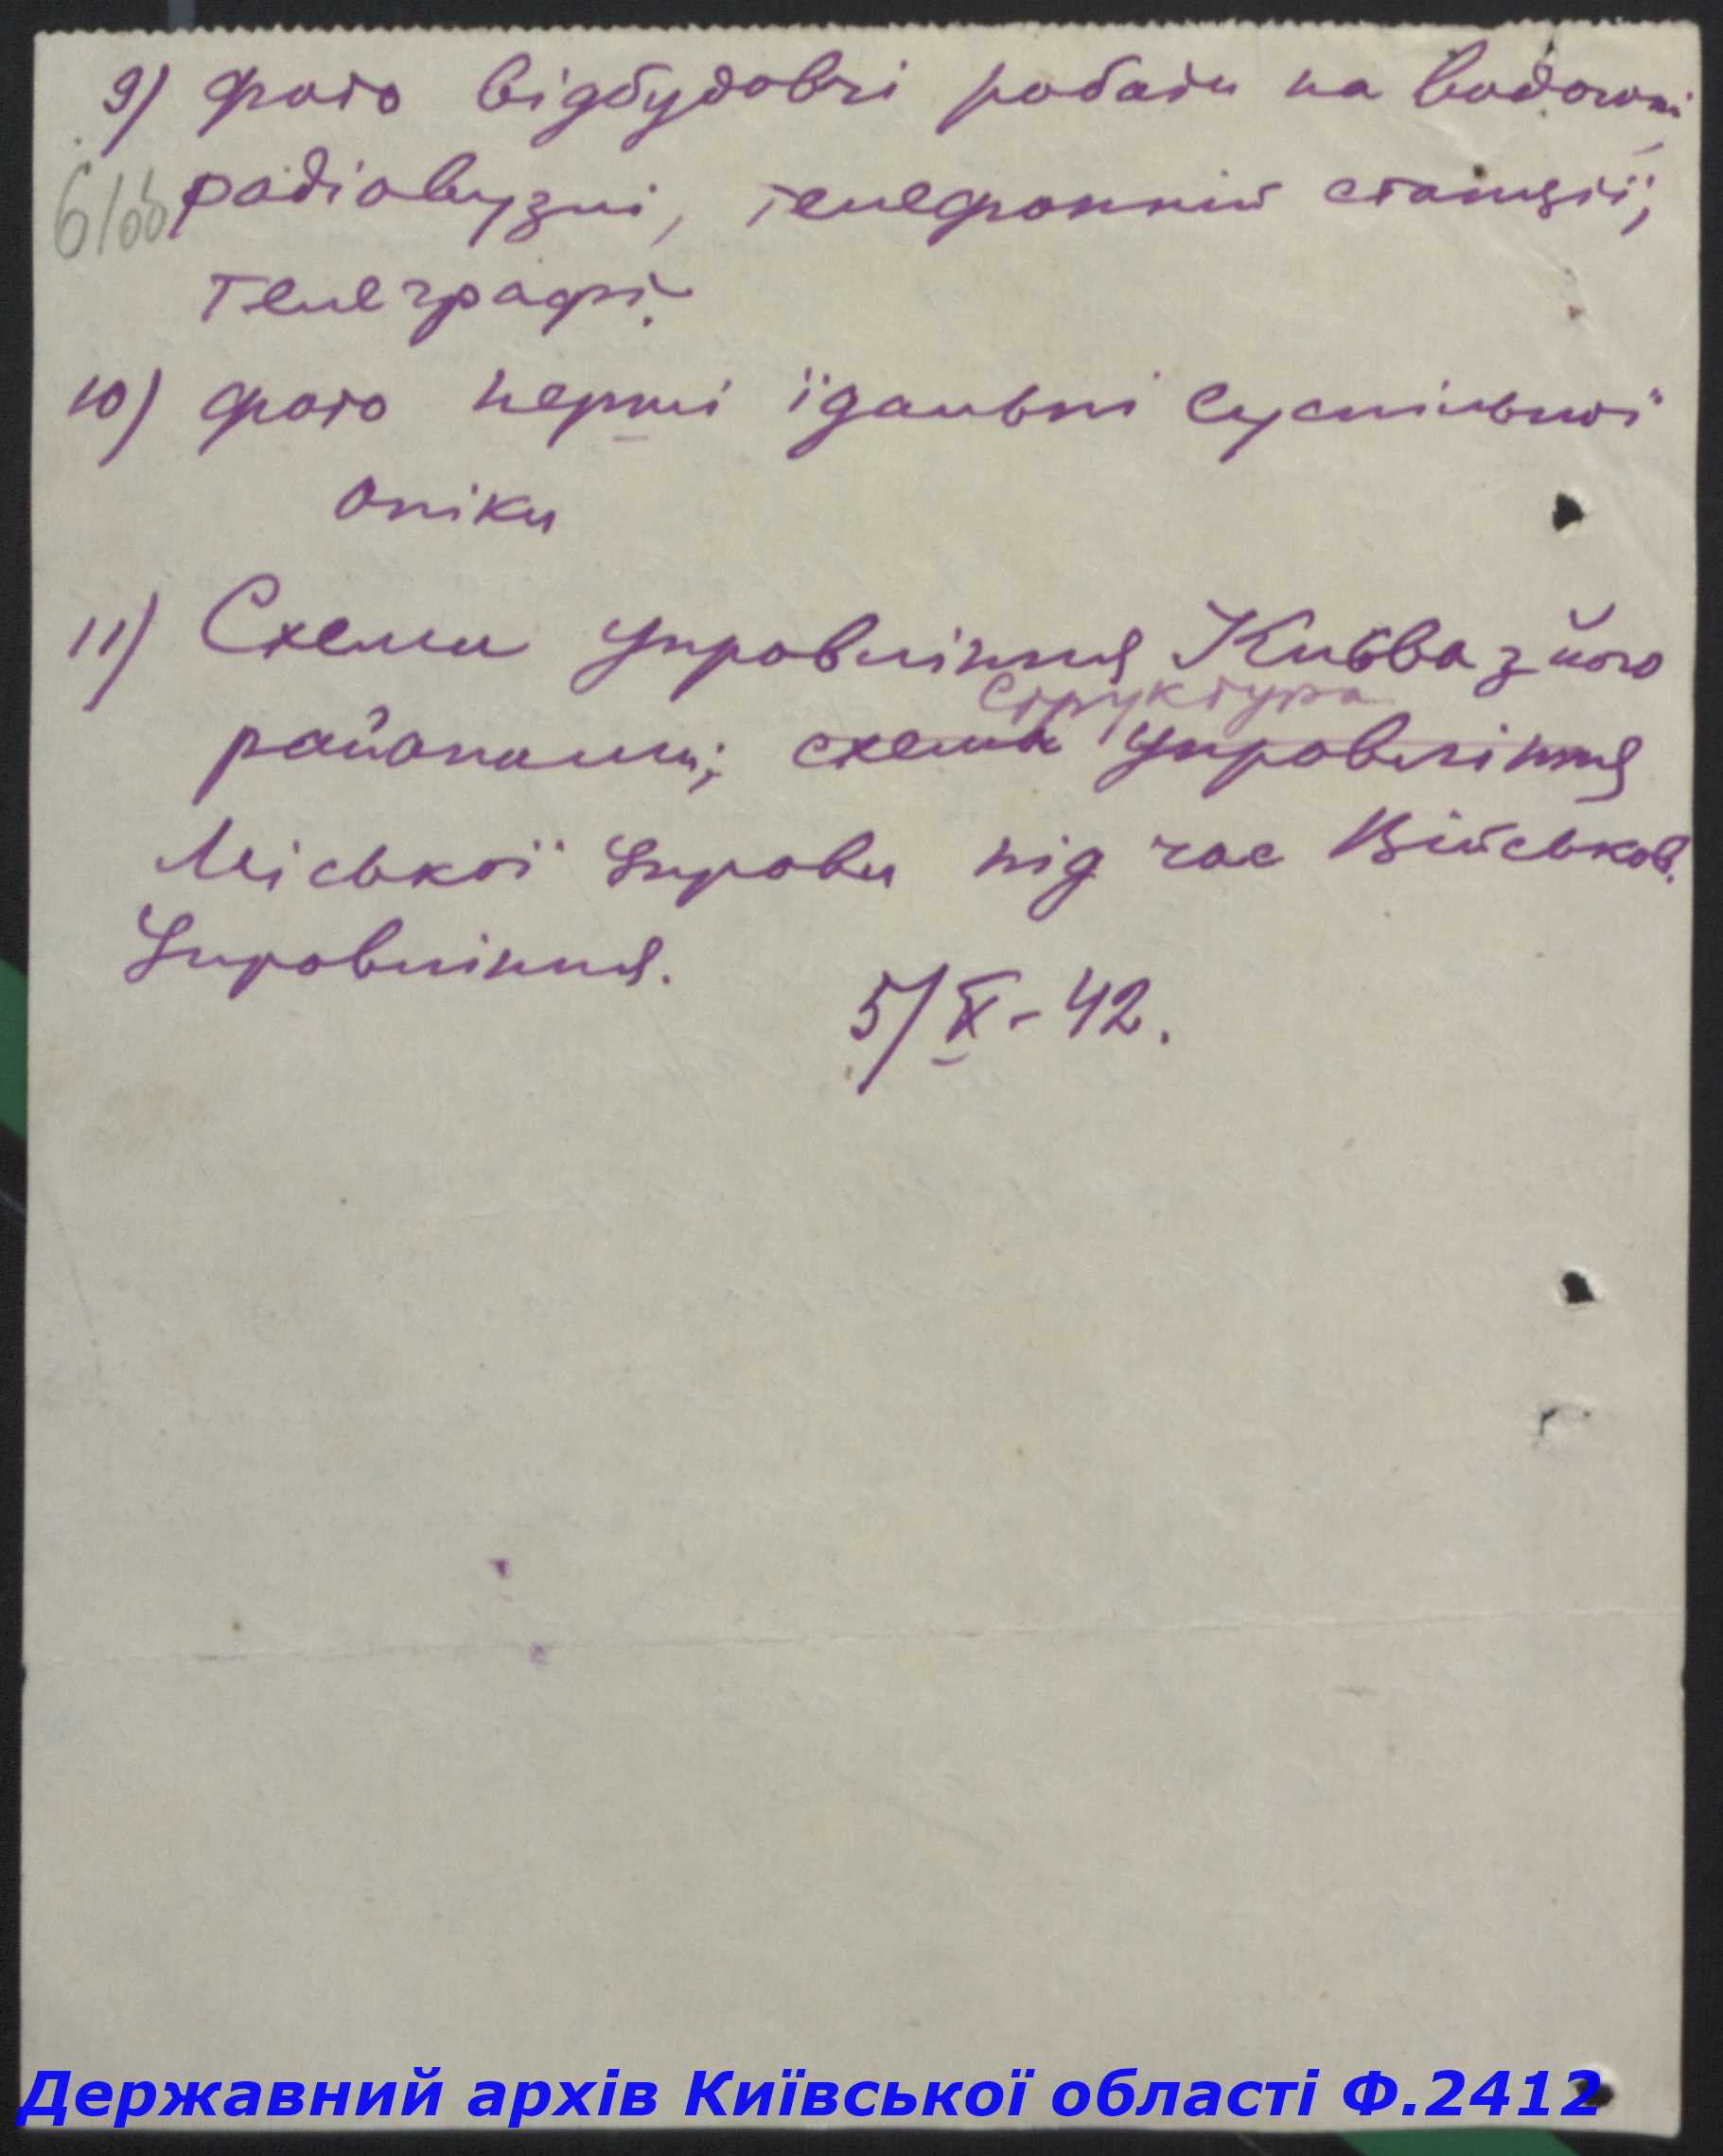 9) фото відбудовчі роботи на водогоні,
6/об радіовузлі, телефонній станції,
телеграфі.
10) фото перші їдальні суспільної
опіки
11) Схеми управління Києва з його
структура
районами; схема управління
Міської Управи під час Військов.
Управління.
5/X-42.
Державний архів Київської області Ф.2412